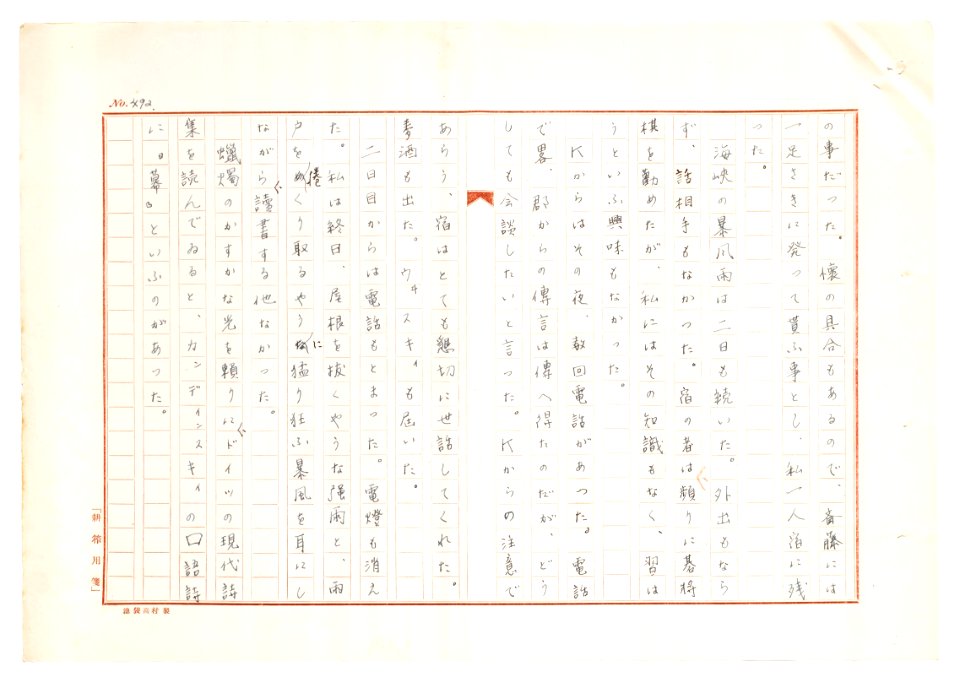 No. 492.
の事だつた。懐の具合もあるので、斎藤には
一足さきに発つて貰ふ事とし、私一人宿に残
つた。
海峡の暴風雨は二日も続いた。外出もなら
ず、話相手もなかつた。宿の者は頻りに碁将
棋を勧めたが、私にはその知識もなく、習は
うといふ興味もなかつた。
Kからはその夜、数回電話があつた。電話
で畧、郡からの傳言は傳へ得たのだが、どう
しても会談したいと言つた。Kからの注意で
あらう、宿はとても懇切に世話してくれた。
麦酒も出た。ウヰスキィも届いた。
二日目からは電話もとまつた。電燈も消え
た。私は終日、屋根を抜くやうな强雨と、雨
戸を捲くり取るやうに猛り狂ふ暴風を耳にし
ながら讀書する他なかつた。
蠟燭のかすかな光を頼りにドイツの現代詩
集を読んでゐると、カンディンスキィの口語詩
に『幕』といふのがあつた。
製村森製錦